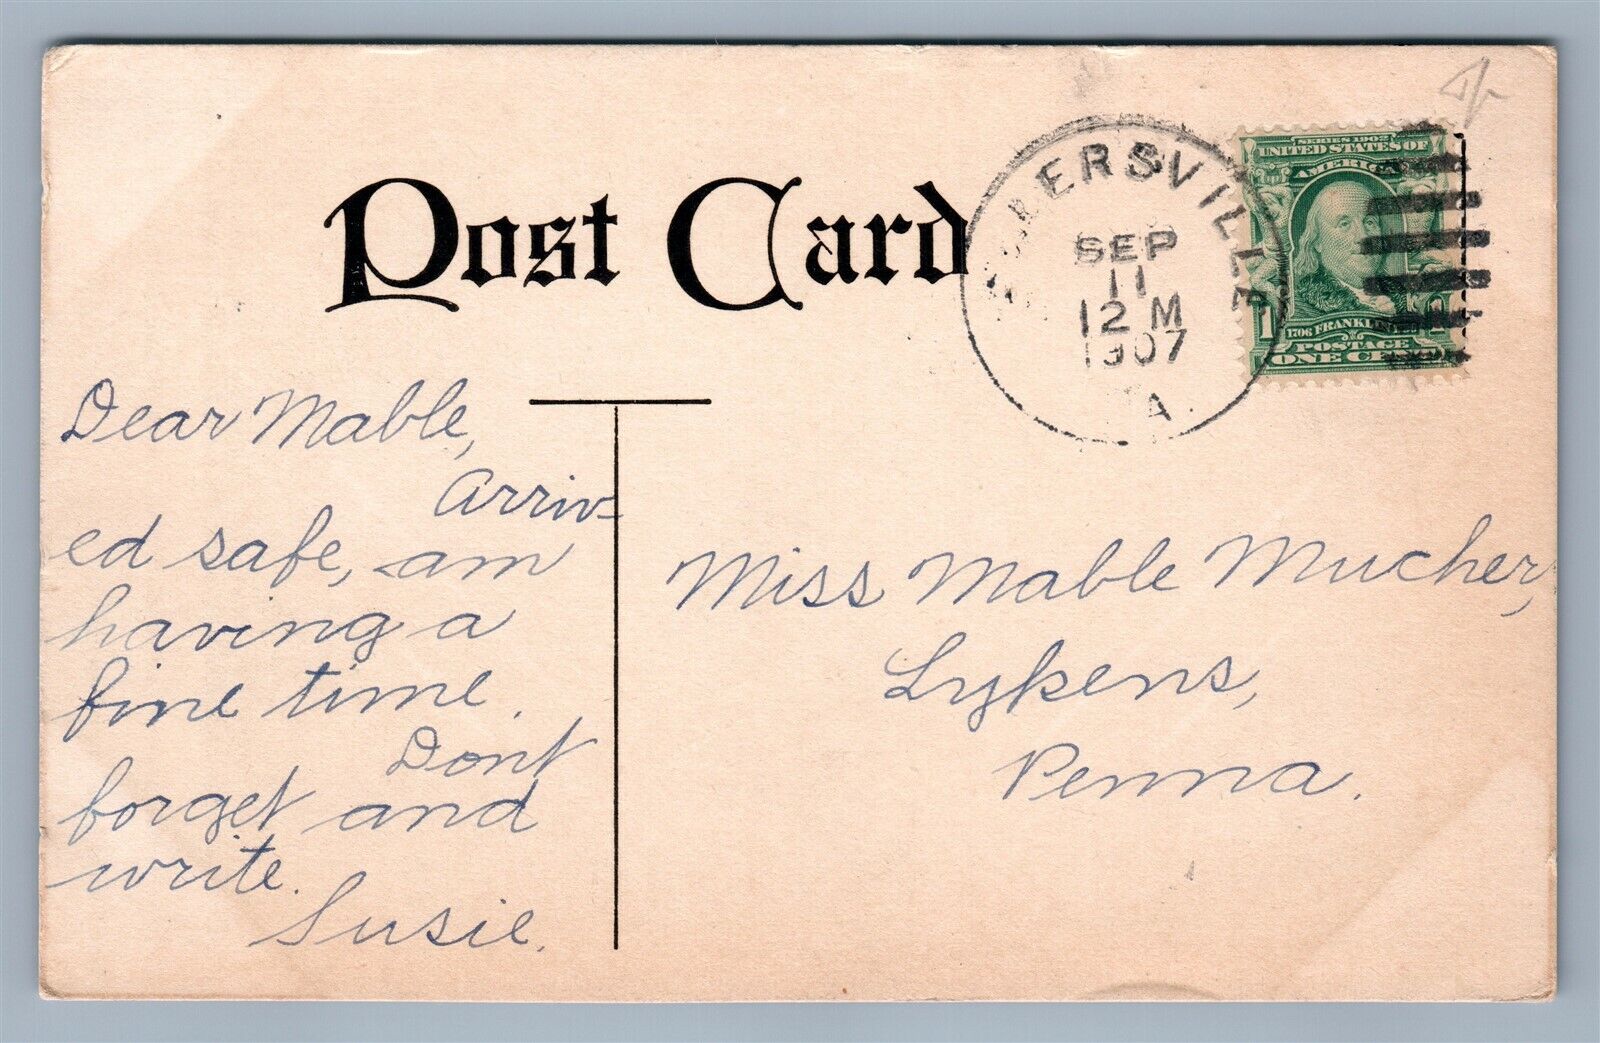 Post Card
SEP
11
12 M
1907
A
SERIES 1902
UNITED STATES OF
AMERICA
1706 FRANKLIN
POSTAGE
ONE CENT
1
Dear Mable,
Arriv-
ed safe, am
having a
fine time.
Dont
forget and
write.
Susie.
Miss Mable Mucher,
Lykens,
Penna.